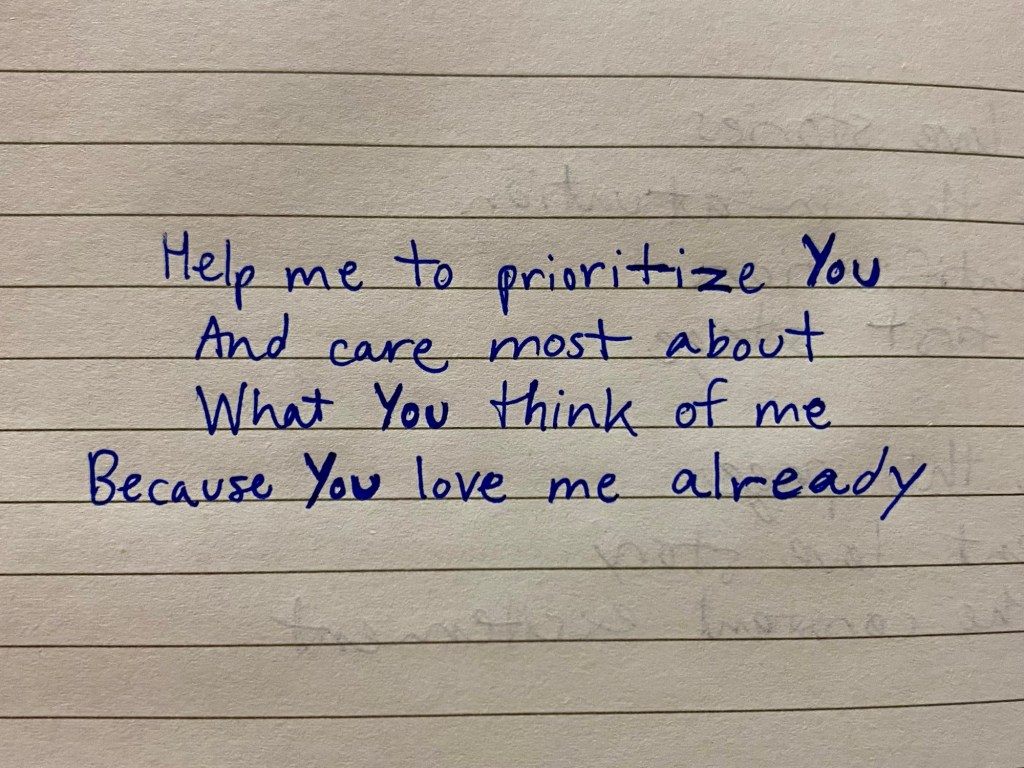 Help me to prioritize You
And care most about
What You think of me
Because You love me already